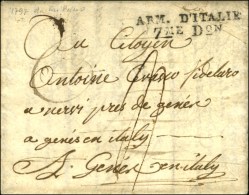 ARM. D'ITALIE
7ME DON
Au Citoyen
Antoine
a nervi près de genes
a genes en italy
A Genes en italy